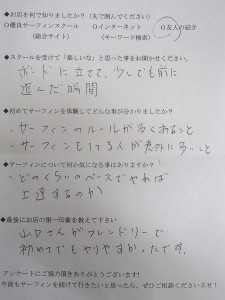 ◆お店を何で知りましたか？（丸で囲んでください）
○優良サーフィンスクール　○インターネット　○友人の紹介
（総合サイト）　（キーワード検索）
◆スクールを受けて「楽しいな」と思った事をお聞かせください。
ボードに立てて、少しでも前に
進んだ瞬間
◆初めてサーフィンを体験してどんな事が分かりましたか？
・サーフィンのルールが多くあること
・サーフィンをしてる人が意外に多いこと
◆サーフィンについて何か気になる事はありますか？
・どのくらいのペースでやれば
上達するのか
◆最後にお店の第一印象を教えて下さい
山口さんがフレンドリーで
初めてでもやりやすかったです。
アンケートにご協力頂きありがとうございます！
今後もサーフィンを続けて行きたいと思ったら、ぜひご相談くださいませ！